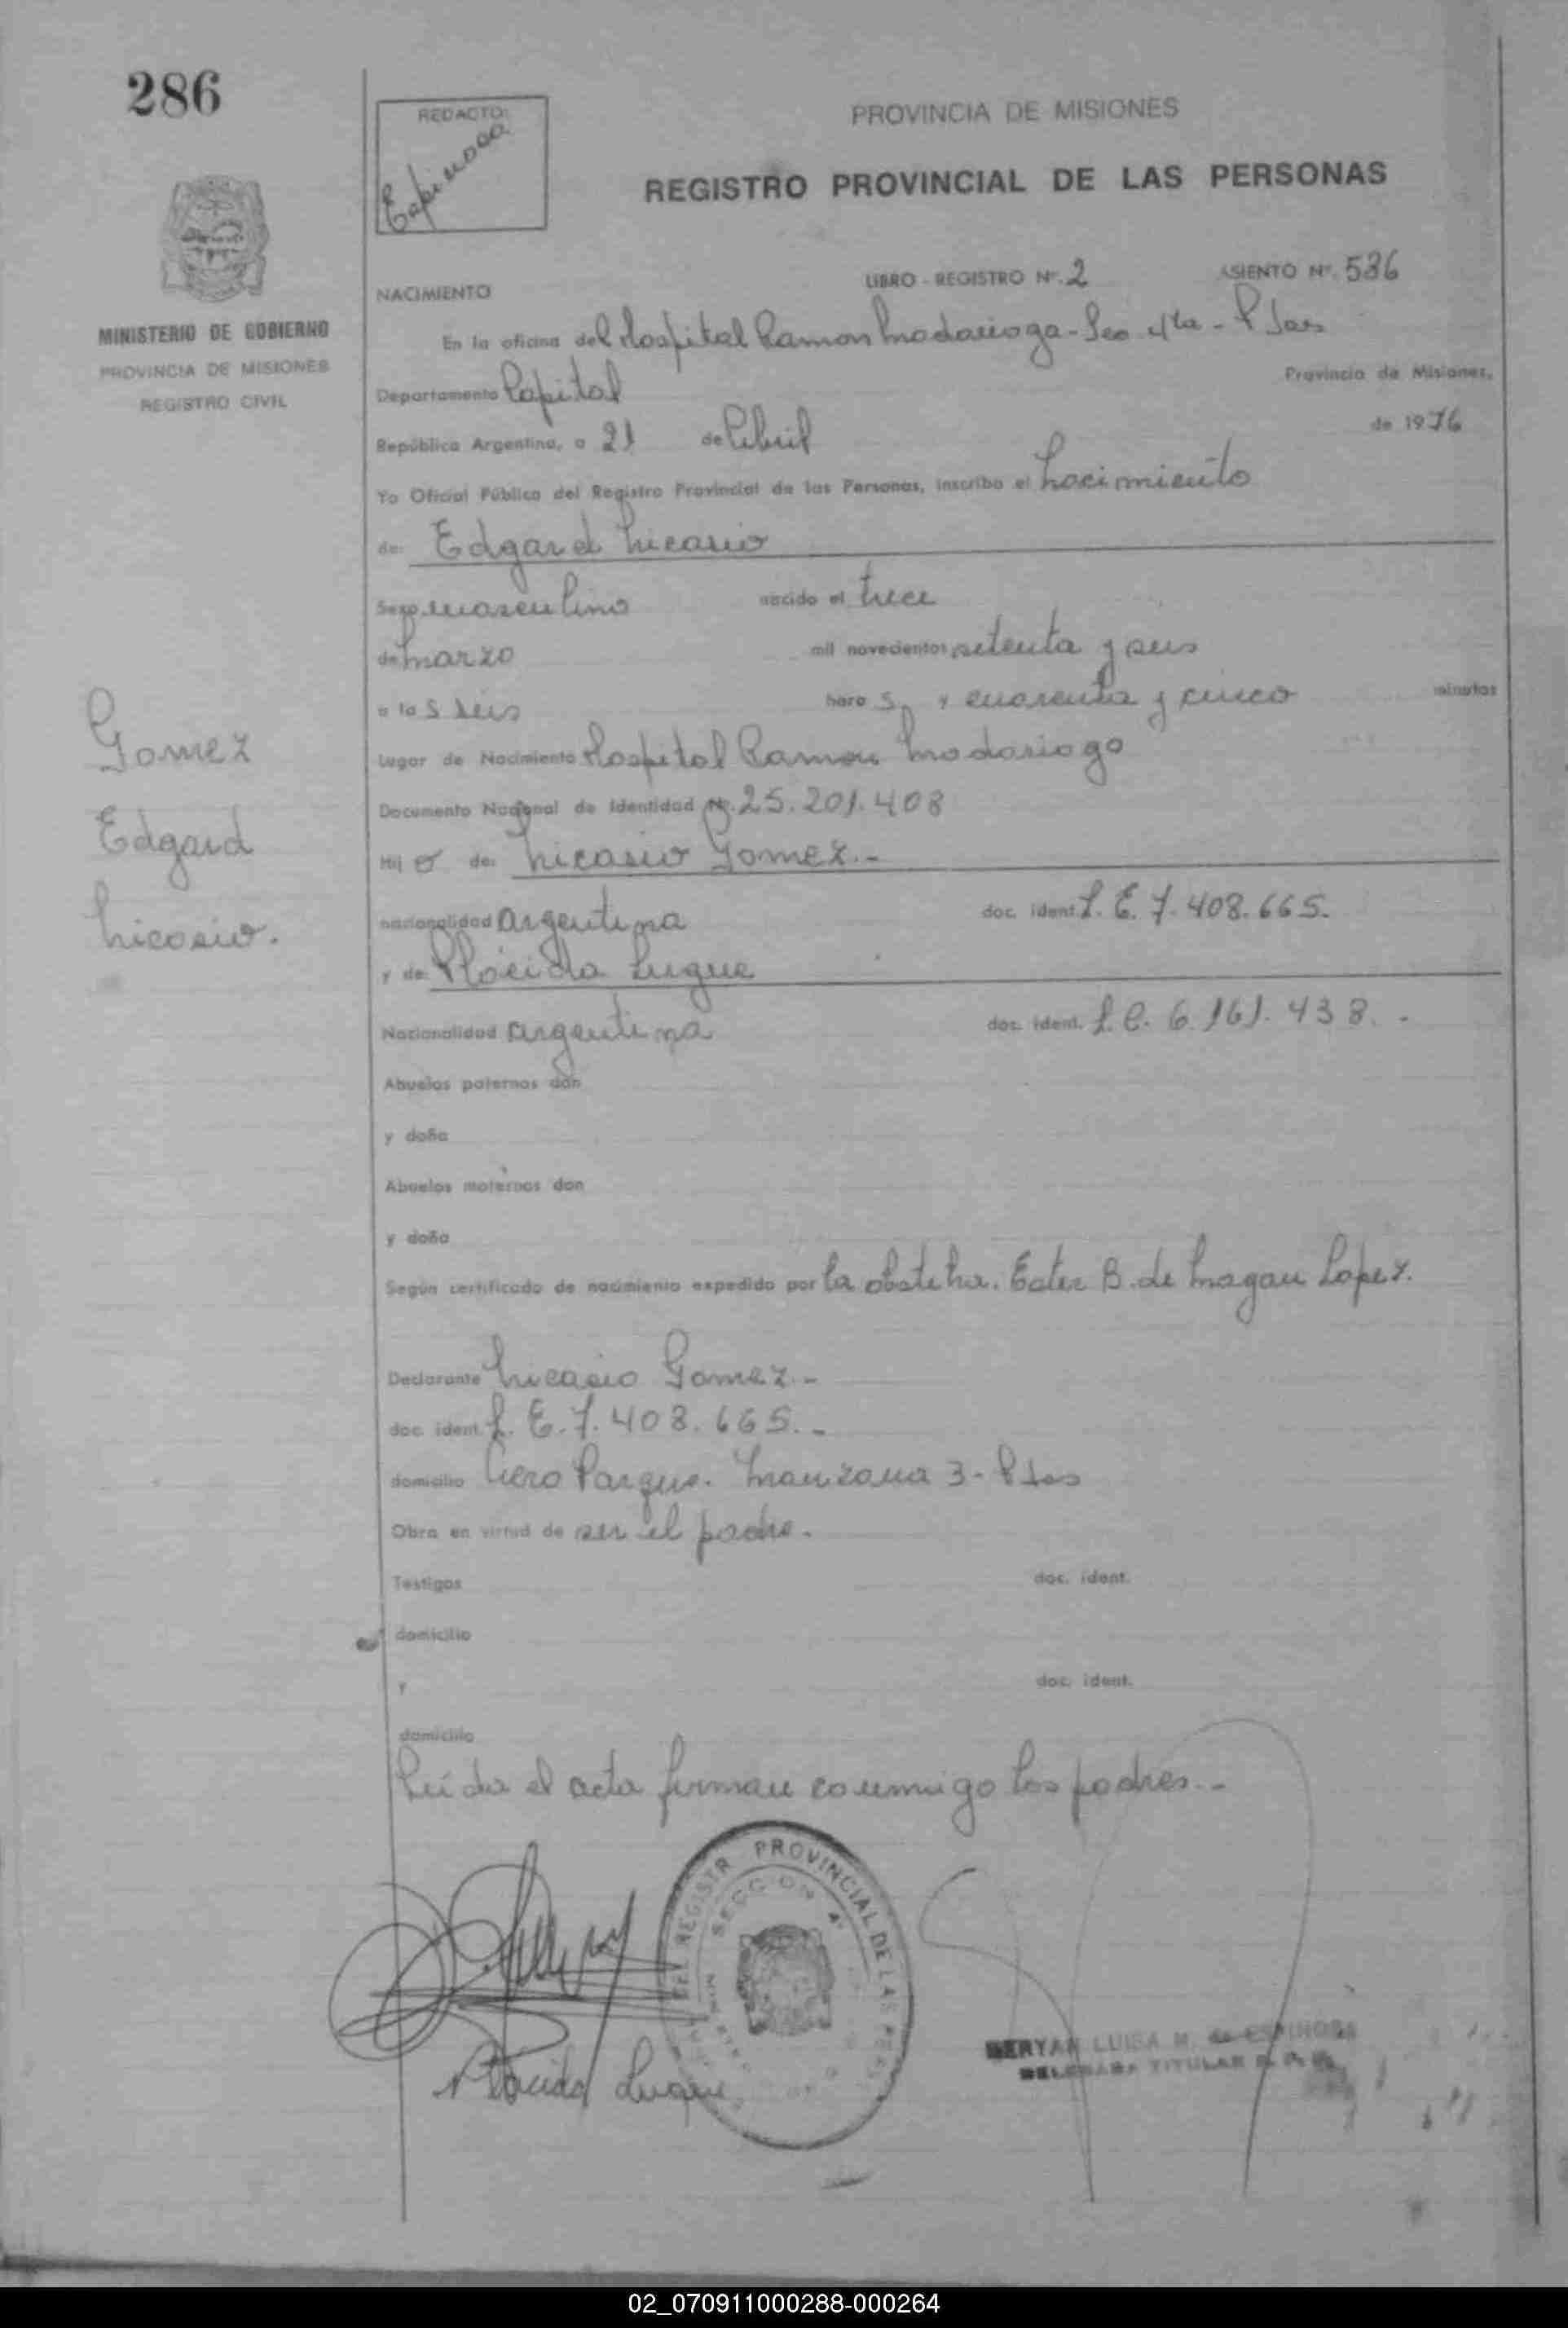 286
REDACTO:
Espinosa
PROVINCIA DE MISIONES
REGISTRO PROVINCIAL DE LAS PERSONAS
MINISTERIO DE GOBIERNO
PROVINCIA DE MISIONES
REGISTRO CIVIL
NACIMIENTO LIBRO - REGISTRO Nº. 2 ASIENTO Nº. 536
En la oficina del Hospital Ramon Madariaga - Sec. 4ta - P Sas
Departamento Capital Provincia de Misiones,
República Argentina, a 21 de Abril de 1976
Yo Oficial Público del Registro Provincial de las Personas, inscribo el Nacimiento
de: Edgard Nicasio
Sexo masculino nacido el trece
de marzo mil novecientos setenta y seis
a las seis horas, y cuarenta y cinco minutos
Lugar de Nacimiento Hospital Ramon Madariaga
Documento Nacional de Identidad Nº. 25.201.408
Hijo de: Nicasio Gomez.-
nacionalidad argentina doc. ident. L. E. 7.408.665.
y de: Plácida Luque
Nacionalidad argentina doc. ident. L. C. 6.161.438. -
Abuelos paternos don
y doña
Abuelos maternos don
y doña
Según certificado de nacimiento expedido por la obstetra. Ester B. de Magan Lopez.
Declarante Nicasio Gomez.-
doc. ident. L. E. 7.408.665.-
domicilio Aero Parque. Manzana 3- P Sas
Obra en virtud de ser el padre.
Testigos doc. ident.
domicilio
y doc. ident.
domicilio
Leída el acta firman conmigo los padres.-
Gomez
Edgard
Nicasio.
REGISTR PROVINCIAL DE LAS
SECCION 4ª
Plácida Luque
LUISA M. de ESPINOSA
DELEGADA TITULAR
02_070911000288-000264